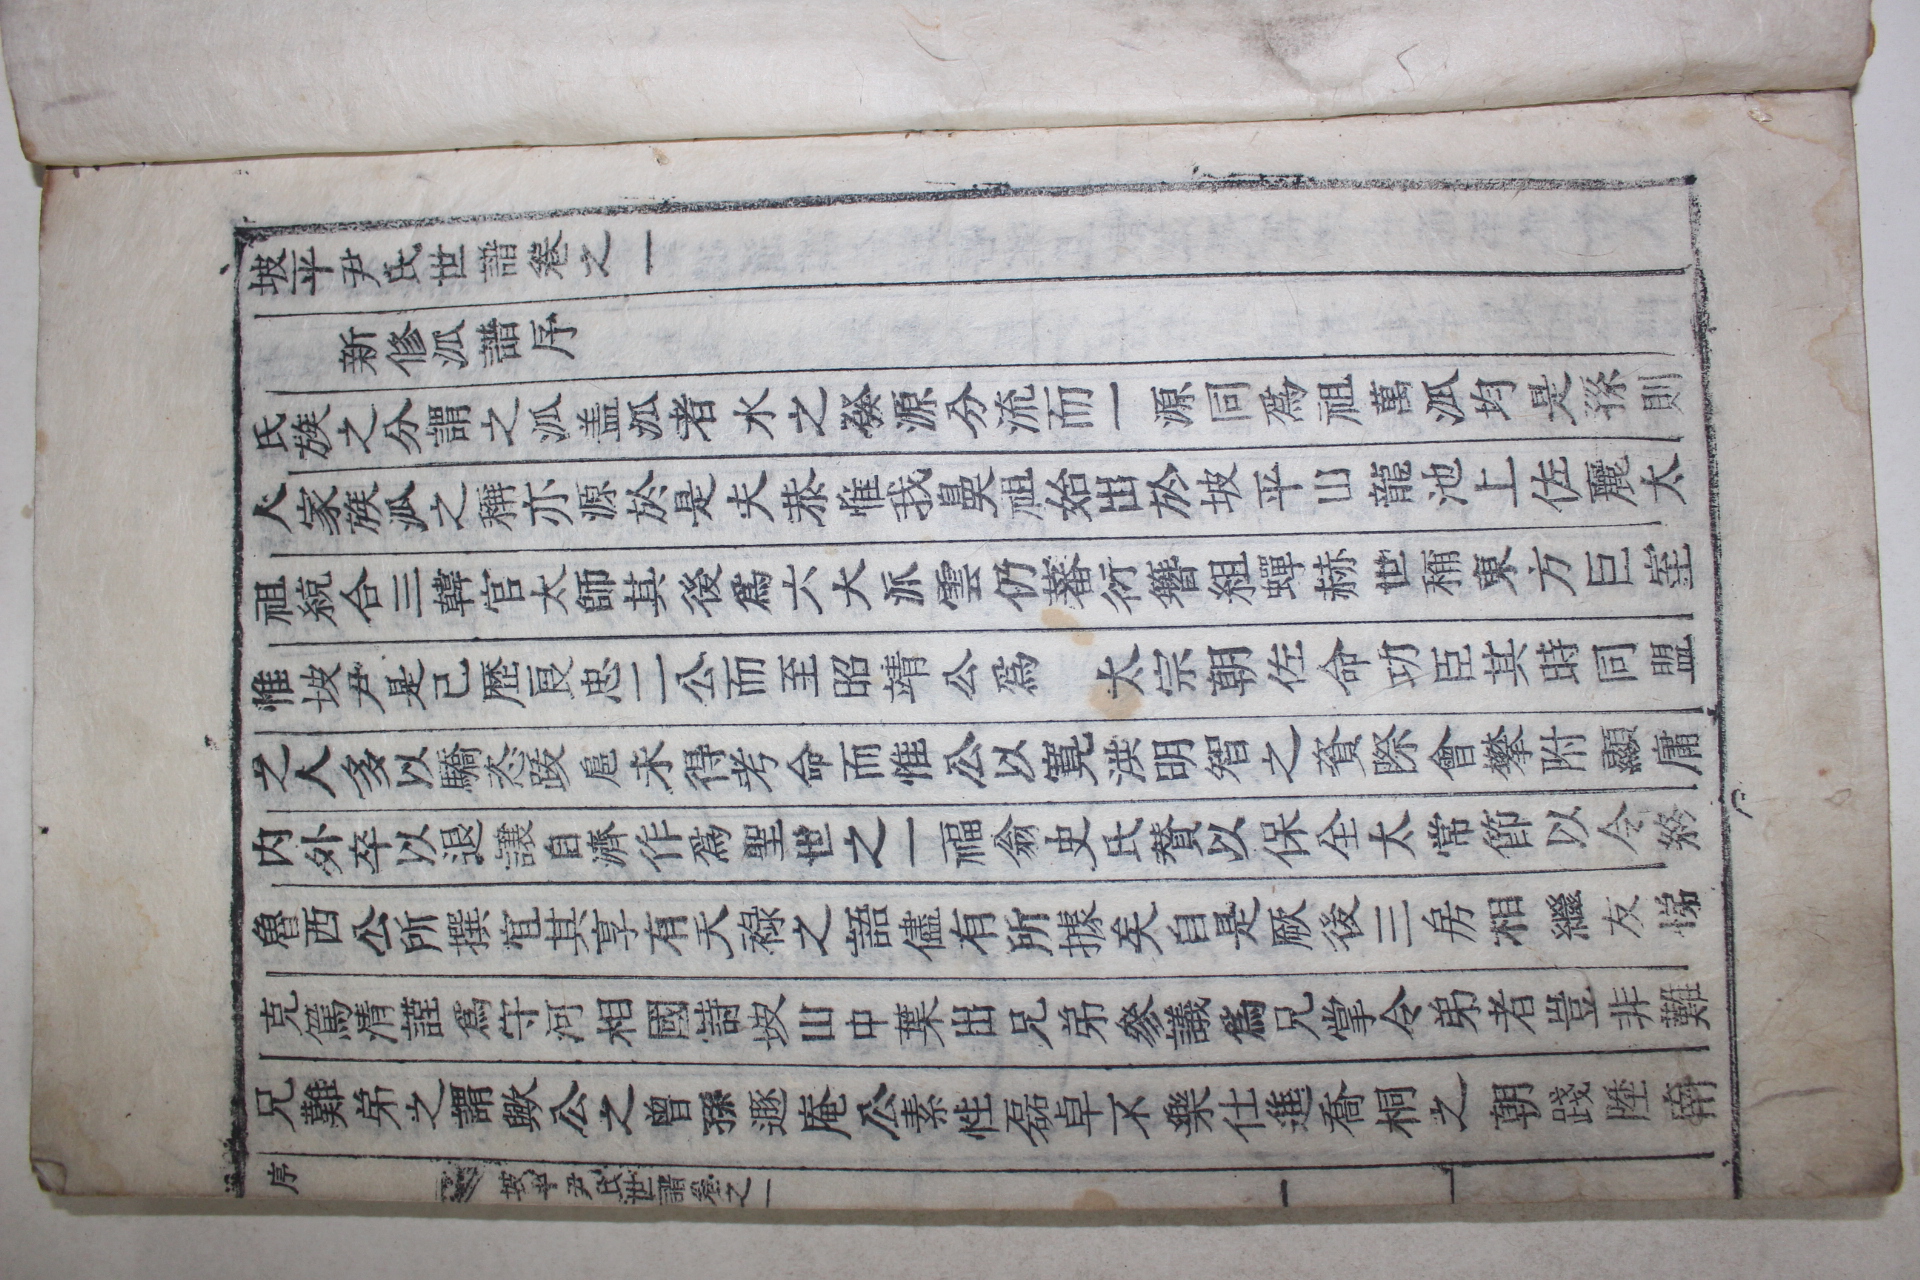 坡平尹氏世譜卷之一
新修派譜序
氏族之分謂之派盖派者水之發源分流而一源同爲祖萬派均是孫則
人家族派之稱亦源於是夫恭惟我鼻祖始出於坡平山龍池上佐麗太
祖統合三韓官太師其後爲六大派雲仍蕃衍簪組蟬赫世稱東方巨室
惟坡尹是已歷良忠二公而至昭靖公爲 太宗朝佐命功臣其時同盟
之人多以驕恣跋扈未得考命而惟公以寬洪明智之資際會攀附顯庸
內外卒以退讓自濟作爲聖世之一福翁史氏賛以保全太常節以令終
魯西公所撰宜其享有天祿之語儘有所據矣自是厥後三房相繼友悌
克篤淸謹爲守河相國詩坡山中葉出兄弟叅議爲兄掌令弟者豈非難
兄難弟之謂歟公之曾孫遯庵公素性磊卓不樂仕進喬桐之朝踐陞
序
坡平尹氏世譜卷之一
一